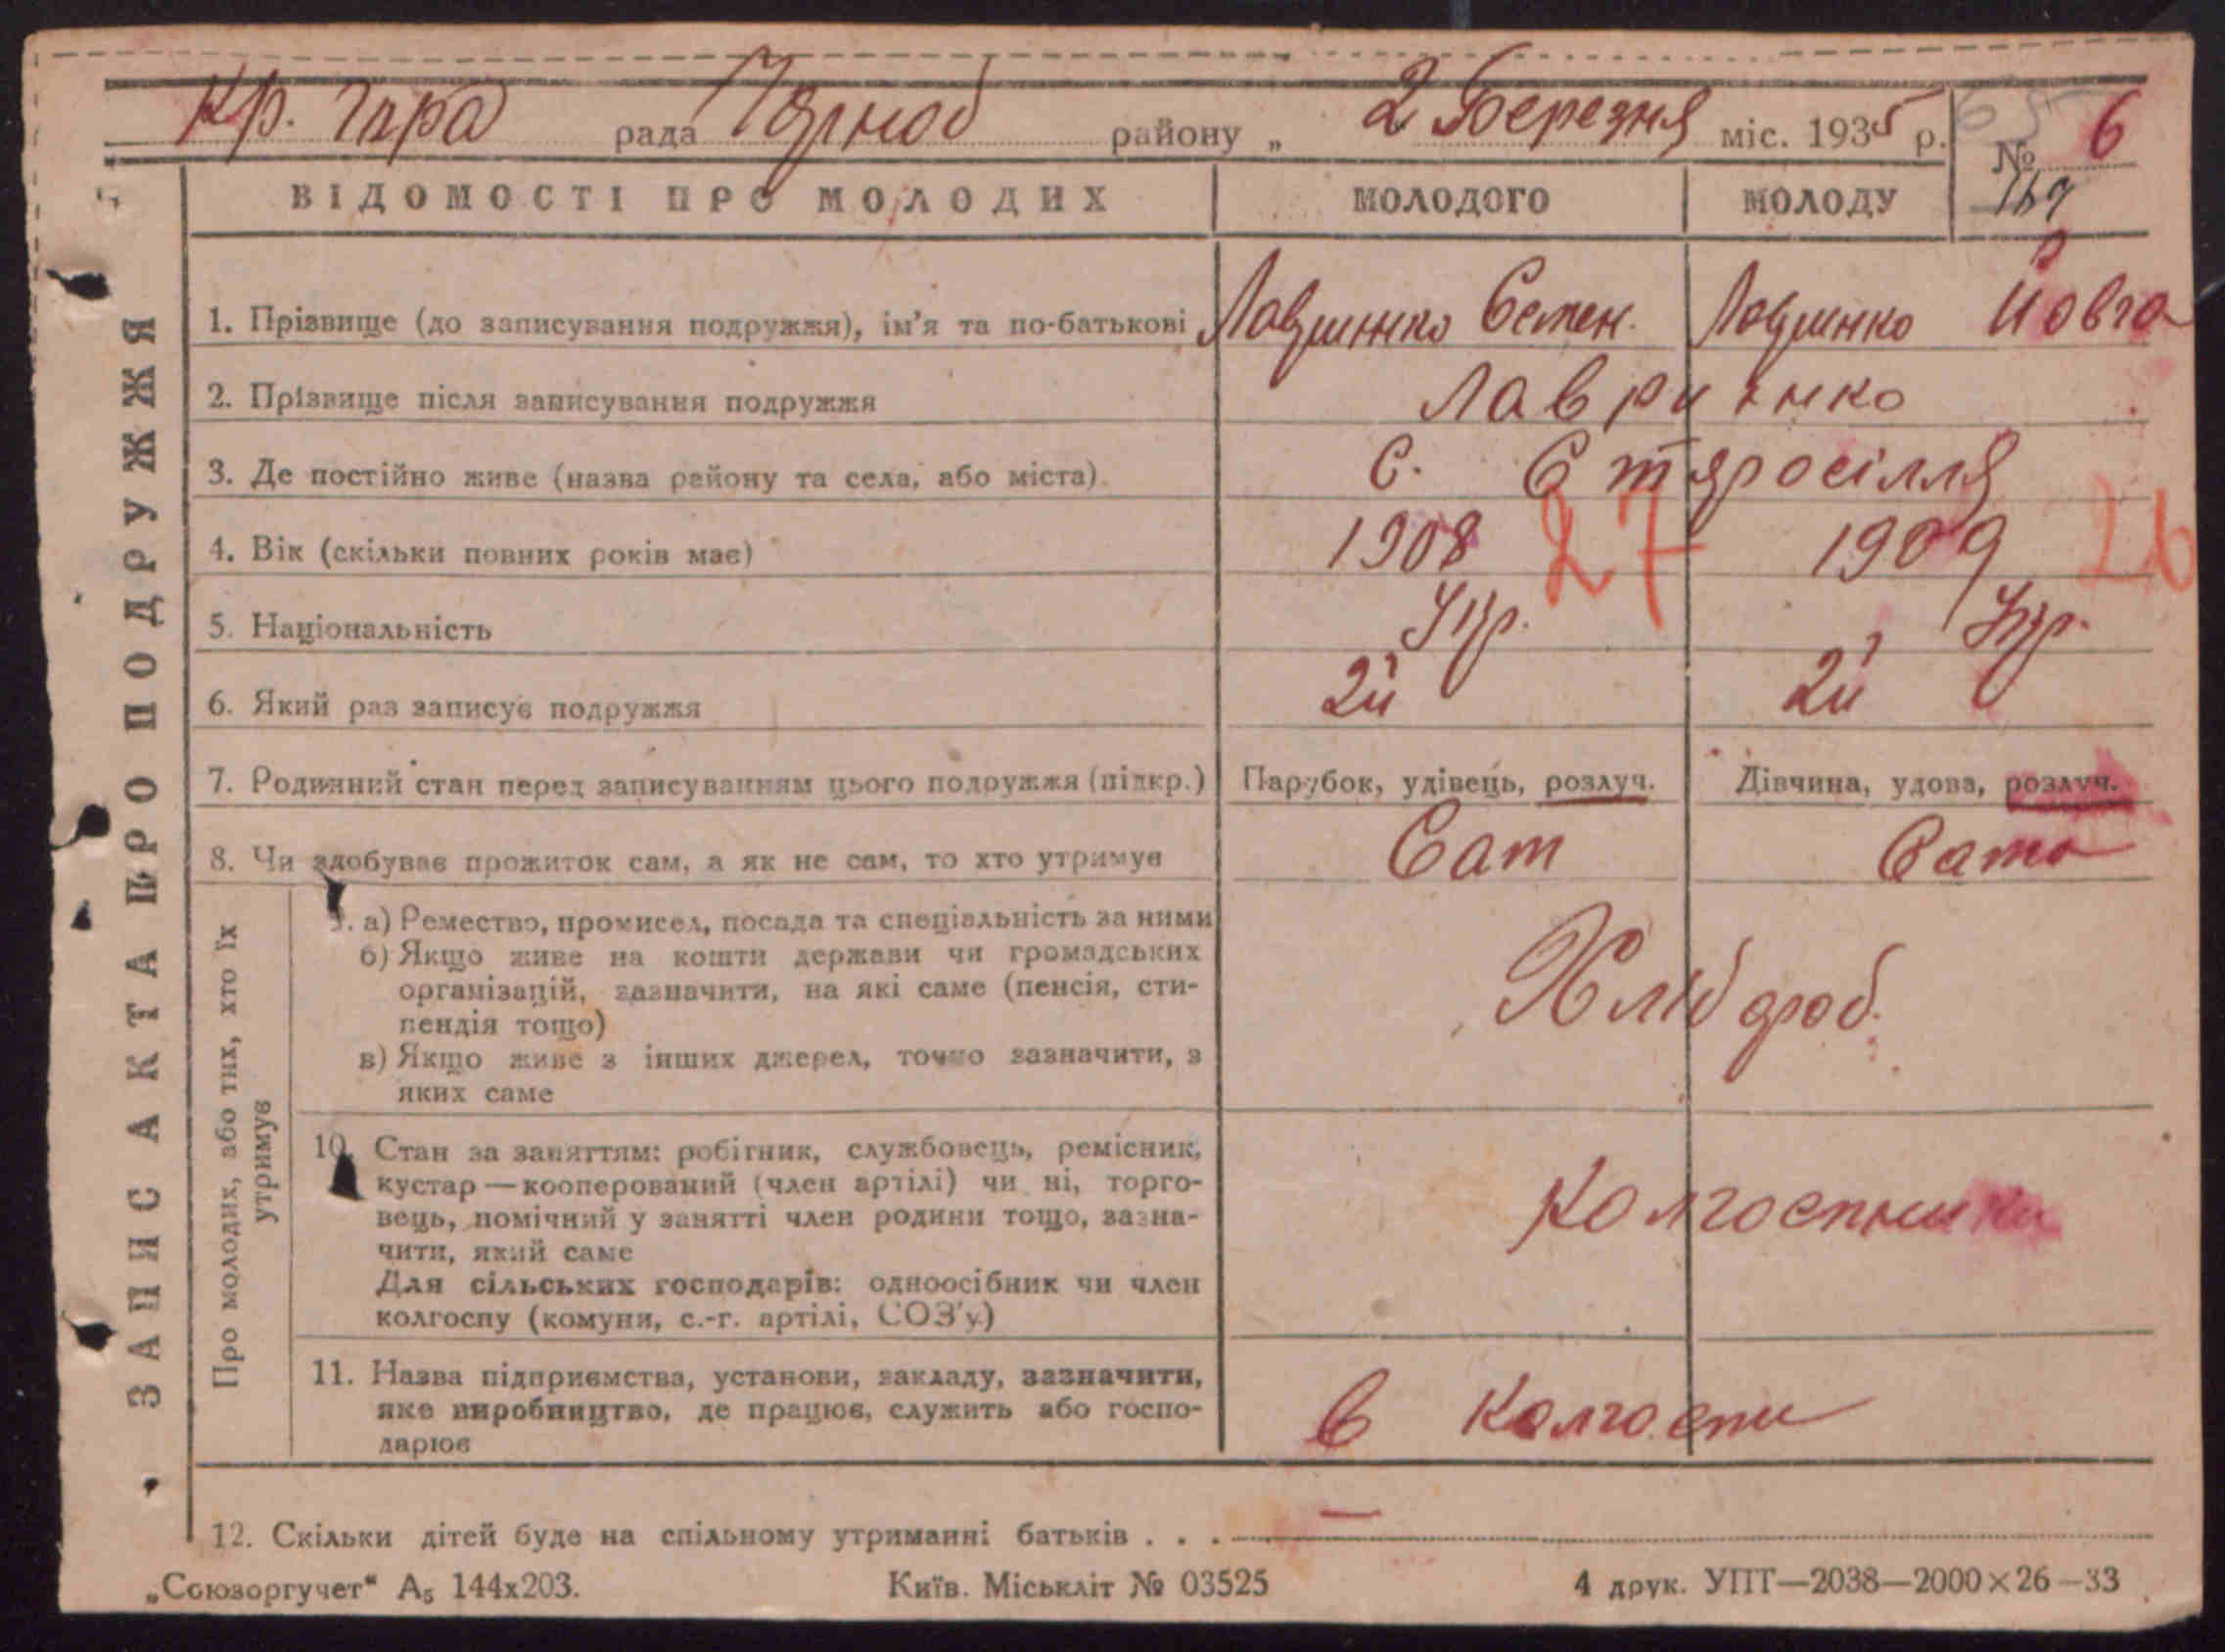 Кр. Гара рада Чорноб району „ 2 Березня міс. 1935 р. № 6
ВІДОМОСТІ ПРО МОЛОДИХ МОЛОДОГО МОЛОДУ
ЗАПИС АКТА ПРО ПОДРУЖЖЯ
1. Прізвище (до записування подружжя), ім'я та по-батькові Лавринко Семен. Лавринко Йовга
2. Прізвище після записування подружжя Лавринко
3. Де постійно живе (назва району та села, або міста) с. Старосілля
4. Вік (скільки повних років має) 1908 27 1909 26
5. Національність Укр. Укр.
6. Який раз записує подружжя 2й 2й
7. Родинний стан перед записуванням цього подружжя (підкр.) Парубок, удівець, розлуч. Дівчина, удова, розлуч.
8. Чи здобуває прожиток сам, а як не сам, то хто утримує Сам Сама
Про молодих, або тих, хто їх
утримує
9. а) Ремество, промисел, посада та спеціальність за ними
б) Якщо живе на кошти держави чи громадських
організацій, зазначити, на які саме (пенсія, сти-
пендія тощо)
в) Якщо живе з інших джерел, точно зазначити, з
яких саме
Хлібороб.
10. Стан за заняттям: робітник, службовець, ремісник,
кустар — кооперований (член артілі) чи ні, торго-
вець, помічний у занятті член родини тощо, зазна-
чити, який саме
Для сільських господарів: одноосібник чи член
колгоспу (комуни, с.-г. артілі, СОЗ'у)
Колгоспники
11. Назва підприємства, установи, закладу, зазначити,
яке виробництво, де працює, служить або госпо-
дарює
в Колгоспи
12. Скільки дітей буде на спільному утриманні батьків . . . —
„Союзоргучет“ А5 144х203. Київ. Міськліт № 03525 4 друк. УПТ—2038—2000×26—33